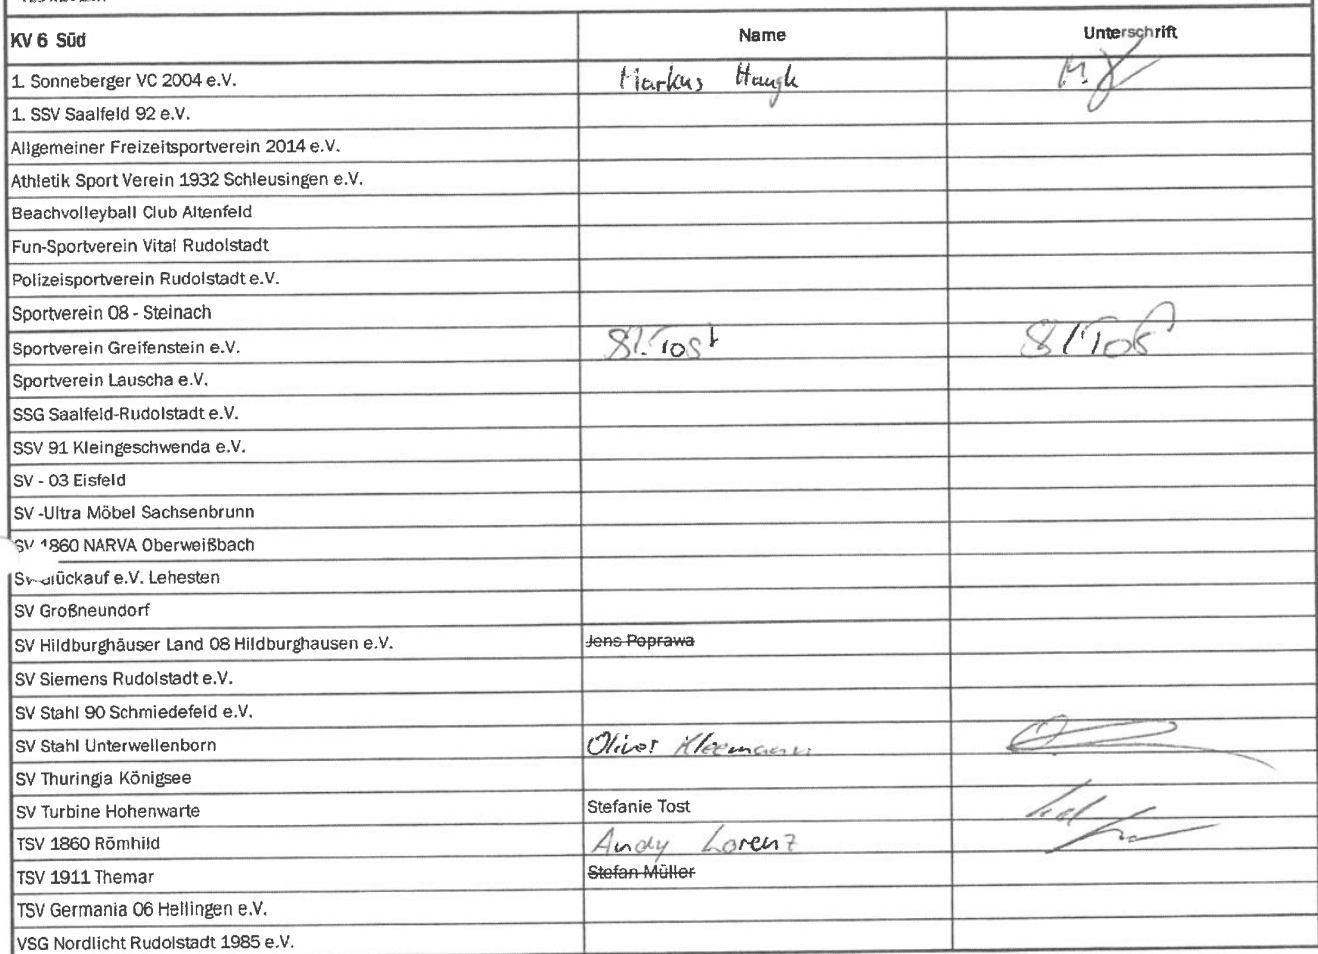 KV 6 Süd Name Unterschrift
1. Sonneberger VC 2004 e.V. Markus Haugk
1. SSV Saalfeld 92 e.V.
Allgemeiner Freizeitsportverein 2014 e.V.
Athletik Sport Verein 1932 Schleusingen e.V.
Beachvolleyball Club Altenfeld
Fun-Sportverein Vital Rudolstadt
Polizeisportverein Rudolstadt e.V.
Sportverein 08 - Steinach
Sportverein Greifenstein e.V. St. Tost
Sportverein Lauscha e.V.
SSG Saalfeld-Rudolstadt e.V.
SSV 91 Kleingeschwenda e.V.
SV - 03 Eisfeld
SV -Ultra Möbel Sachsenbrunn
SV 1860 NARVA Oberweißbach
SV Glückauf e.V. Lehesten
SV Großneundorf
SV Hildburghäuser Land 08 Hildburghausen e.V. Jens Poprawa
SV Siemens Rudolstadt e.V.
SV Stahl 90 Schmiedefeld e.V.
SV Stahl Unterwellenborn Oliver Kleemann
SV Thuringia Königsee
SV Turbine Hohenwarte Stefanie Tost
TSV 1860 Römhild Andy Lorenz
TSV 1911 Themar Stefan Müller
TSV Germania 06 Hellingen e.V.
VSG Nordlicht Rudolstadt 1985 e.V.